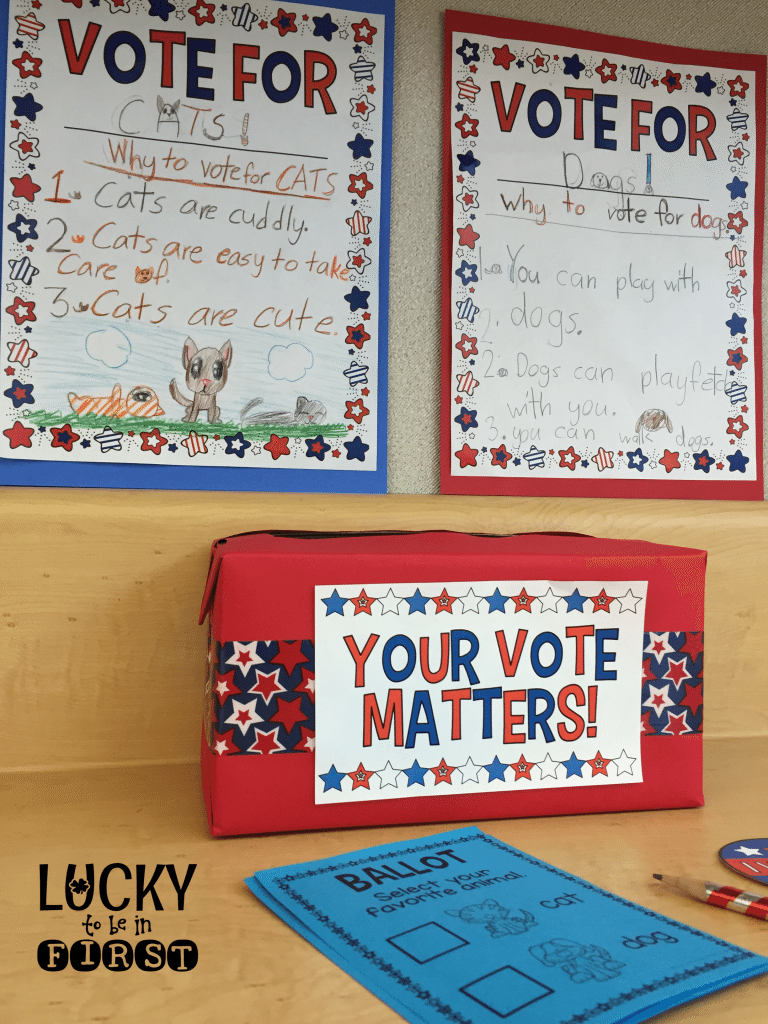 VOTE FOR
CATS!
Why to vote for CATS
1. Cats are cuddly.
2. Cats are easy to take
Care of.
3. Cats are cute.
VOTE FOR
Dogs!
Why to vote for dogs
1. You can play with
dogs.
2. Dogs can playfetch
with you.
3. you can walk dogs.
YOUR VOTE
MATTERS!
BALLOT
Select your
favorite animal.
cat
dog
LUCKY
to be in
FIRST